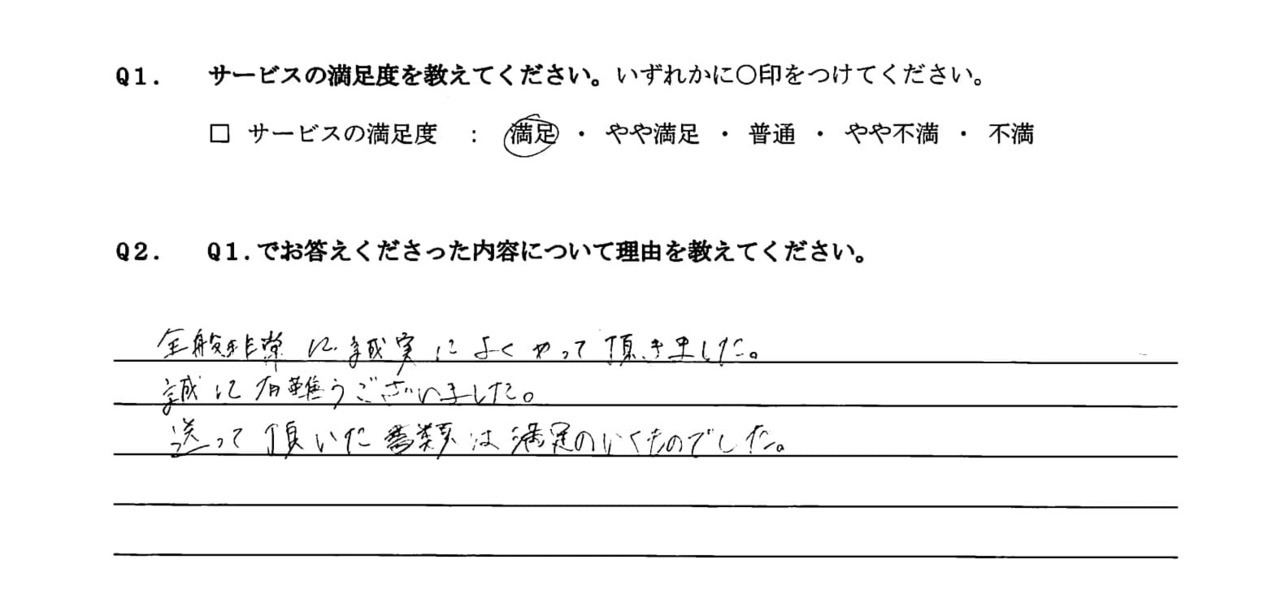 Q1. サービスの満足度を教えてください。いずれかに○印をつけてください。
□ サービスの満足度 : 満足 ・ やや満足 ・ 普通 ・ やや不満 ・ 不満
Q2. Q1.でお答えくださった内容について理由を教えてください。
全般非常に誠実によくやって頂きました。
誠に有難うございました。
送って頂いた書類は満足のいくものでした。